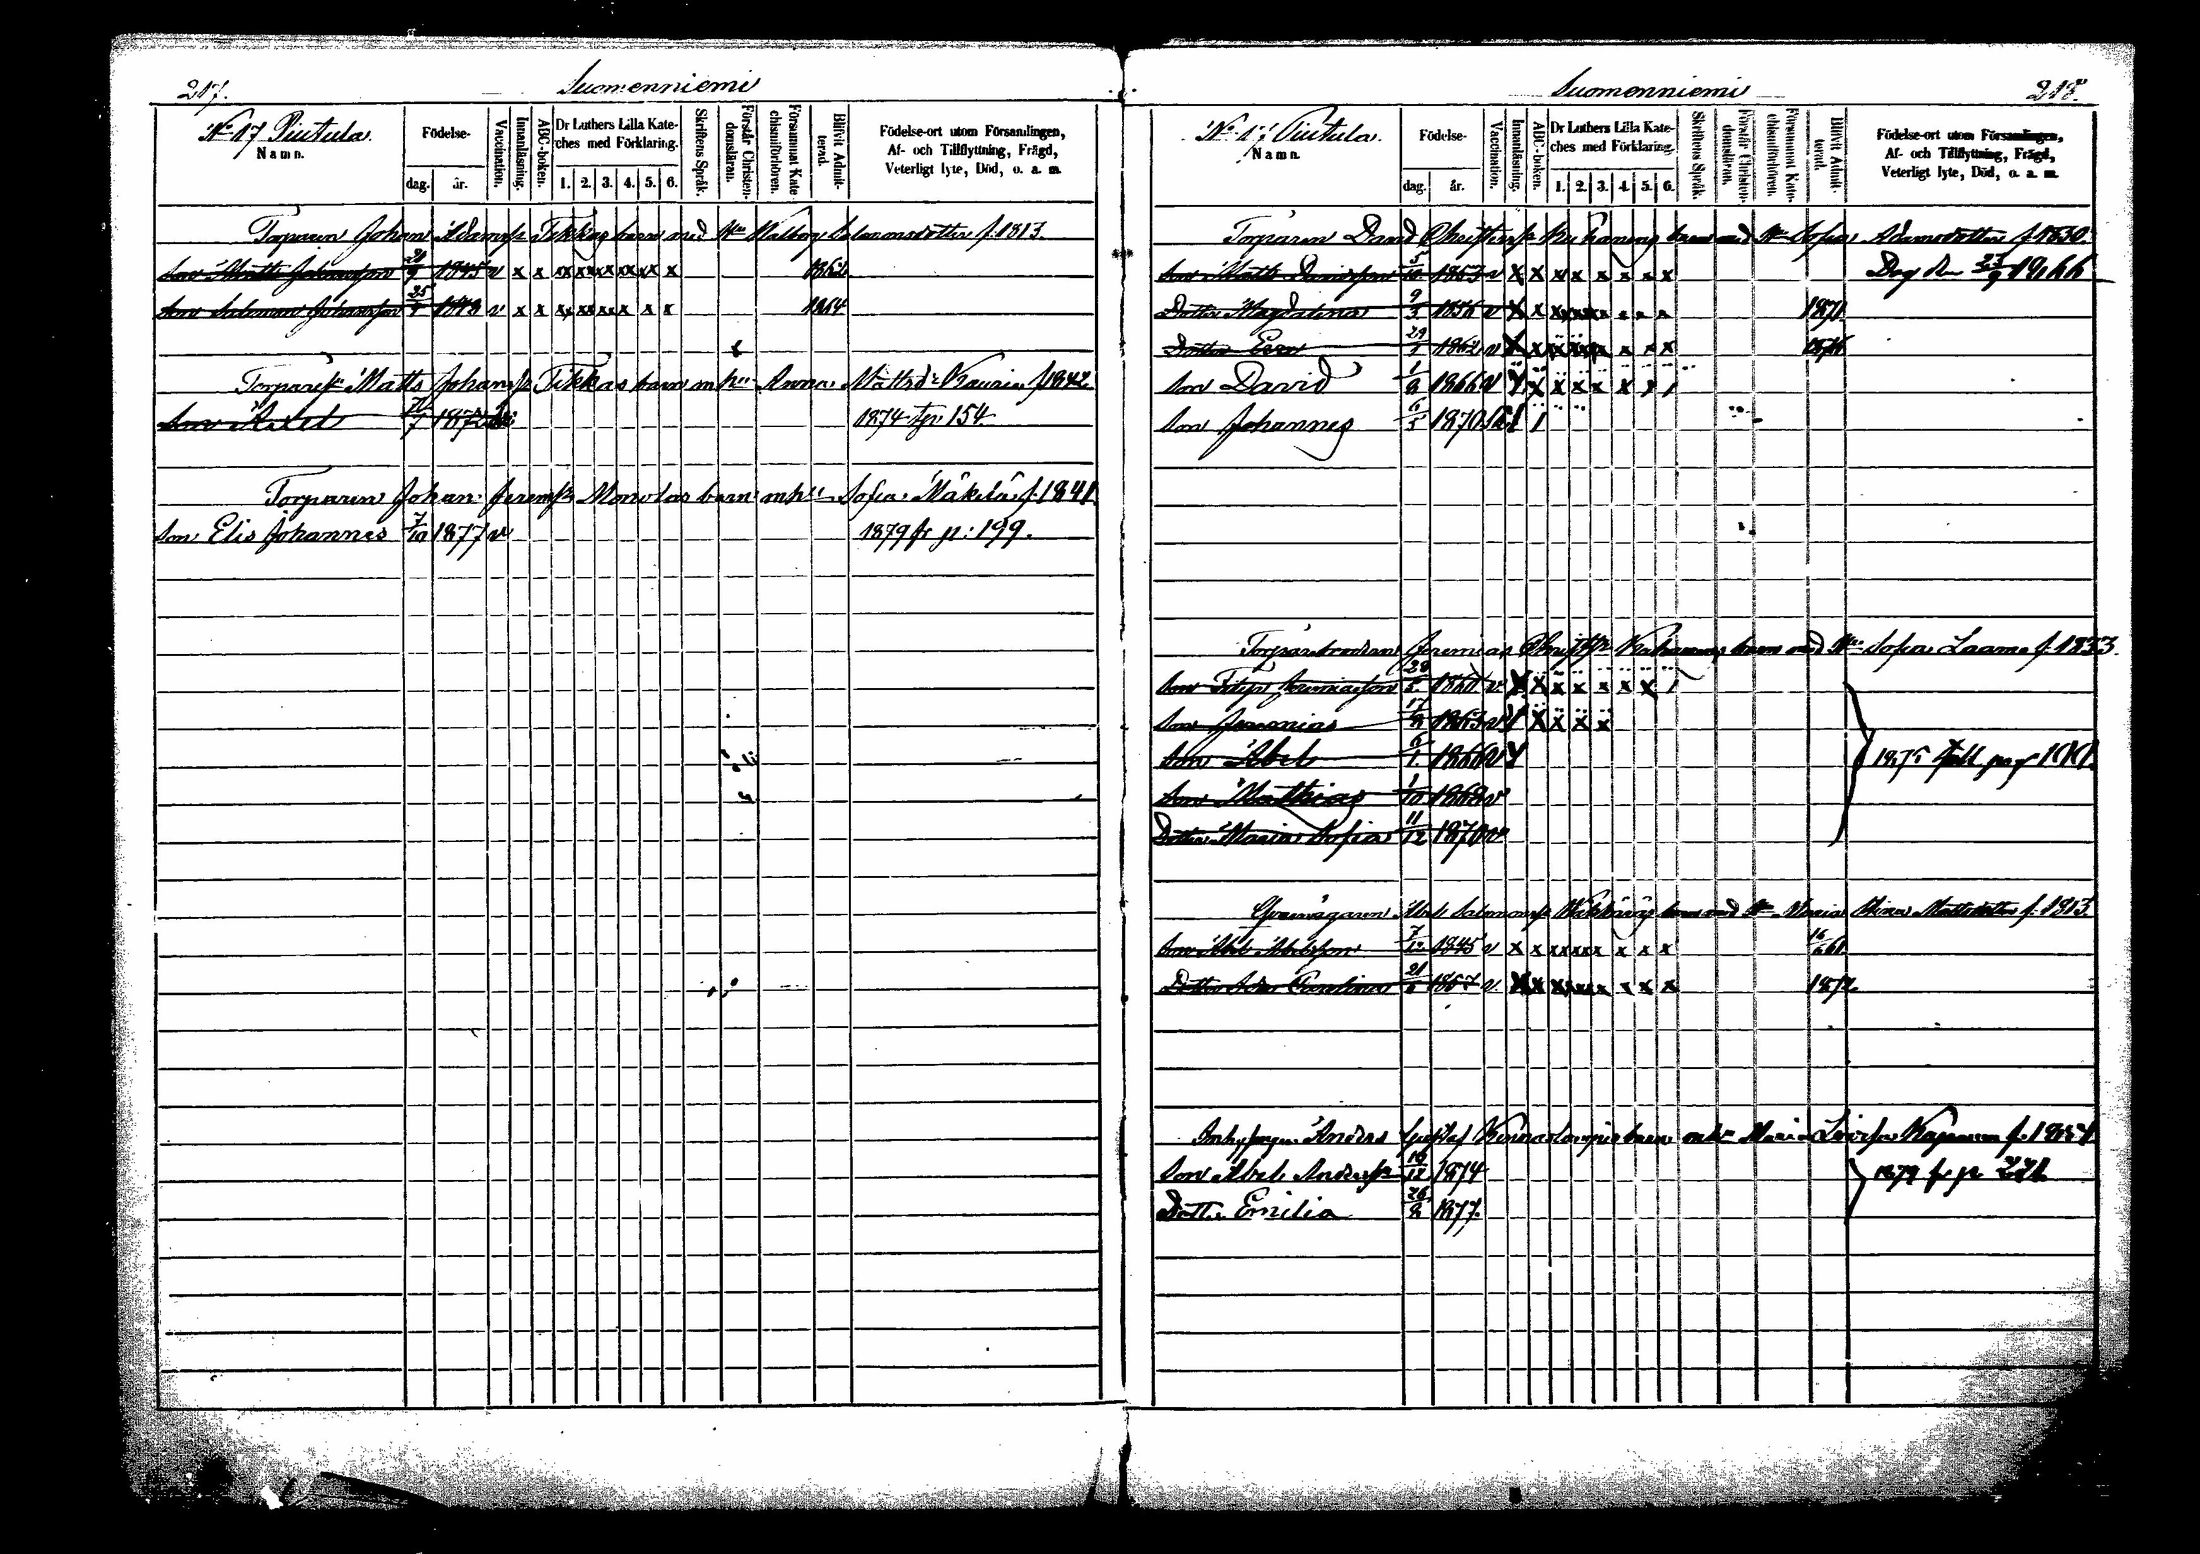 217. Suomenniemi
No 17 Piutula.
Namn.
Födelse-
dag. år.
Vaccination.
Innanläsning.
ABC-boken.
Dr Luthers Lilla Kate-
ches med Förklaring.
1. 2. 3. 4. 5. 6.
Skriftens Språk.
Förstår Christen-
domsläran.
Försummat Kate-
chismiförhören.
Blifvit Admit-
terad.
Födelse-ort utom Församlingen,
Af- och Tillflyttning, Frägd,
Veterligt lyte, Död, o. a. m.
Torparen Johan Adamss: Tikkas barn med Hu Walborg Salomonsdotter f. 1813.
Son Matts Johansson 9 1845 v x x x x x x x x 1862
Son Salomon Johansson 25 1848 v x x x x x x x x 1864
Torparen Matts Johanss: Tikkas barn m hu Anna Mattsdr Kauria f 1842
Son Axel 7 1872 1874 tgn 154.
Torparen Johan Jeremss Monolas barn m hu Sofia Mäkelä f. 1841
Son Elis Johannes 7/10 1877 v 1879 fr p: 199.
Suomenniemi 218.
No 17 Piutula.
Namn.
Födelse-
dag. år.
Vaccination.
Innanläsning.
ABC-boken.
Dr Luthers Lilla Kate-
ches med Förklaring.
1. 2. 3. 4. 5. 6.
Skriftens Språk.
Förstår Christen-
domsläran.
Försummat Kate-
chismiförhören.
Blifvit Admit-
terad.
Födelse-ort utom Församlingen,
Af- och Tillflyttning, Frägd,
Veterligt lyte, Död, o. a. m.
Torparen David Christerss: barn med Hu Sofia Adamsdotter f. 1830.
Son Matts Davidsson 5/10 1853 v x x x x x x x x Dog den 23/9 1866
Dotter Magdalena 9/5 1856 v x x x x x x x x 1871.
Dotter Eva 29 1862 v x x x x x x x x
Son David 1/8 1866 v x x x x x x
Son Johannes 6/5 1870
Torparebrodren Jeremias barn med Hu Sofia Laama f. 1833.
Son Filip Jeremiasson 28 1860 v x x x x x x x
Son Jeremias 17/8 1863 v x x x x
Son Abel 6/1 1866 v 1875 pag
Son Mathias 1/10 1868 v
Dotter Maria Sofia 11/12 1870 v
Abel Salomonss: barn med Hu Maria Mattsdotter f. 1813.
Son Abel Abelsson 7/12 1845 v x x x x x x x x
Dotter Ida Carolina 21 1857 v x x x x x x x x 1872.
Anders Gustaf barn m hu Maria Lovisa f. 1854
Son Abel Anderss: 10/12 1874 1879 fr p
Dotter Emilia 26/8 1877.